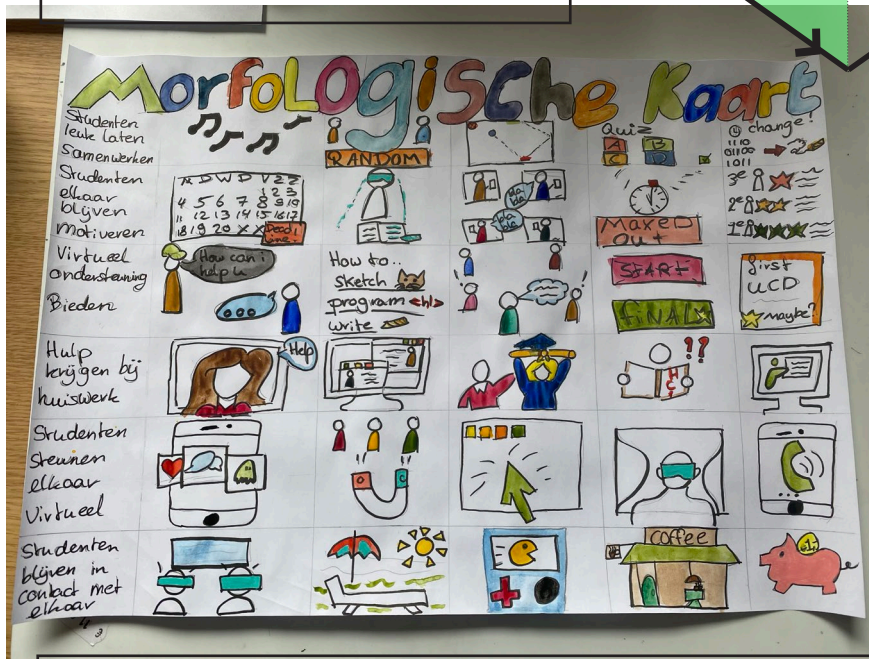 Morfologische Kaart
Studenten
leuk laten
samenwerken
RANDOM
Quiz
A B
C D
change!
1110
01100
1011
Studenten
elkaar
blijven
motiveren
M D W D V Z Z
1 2 3
4 5 6 7 8 9 10
11 12 13 14 15 16 17
18 19 20 X X Dead
line!
bla
bla
bla
bla
Maxed
out
3e
2e
1e
Virtueel
ondersteuning
Bieden
How can i
help u
How to..
sketch
program <h1>
write
START
FINAL
first
UCD
maybe?
Hulp
krijgen bij
huiswerk
Help
HCI
??
Studenten
steunen
elkaar
Virtueel
Studenten
blijven in
contact met
elkaar
coffee